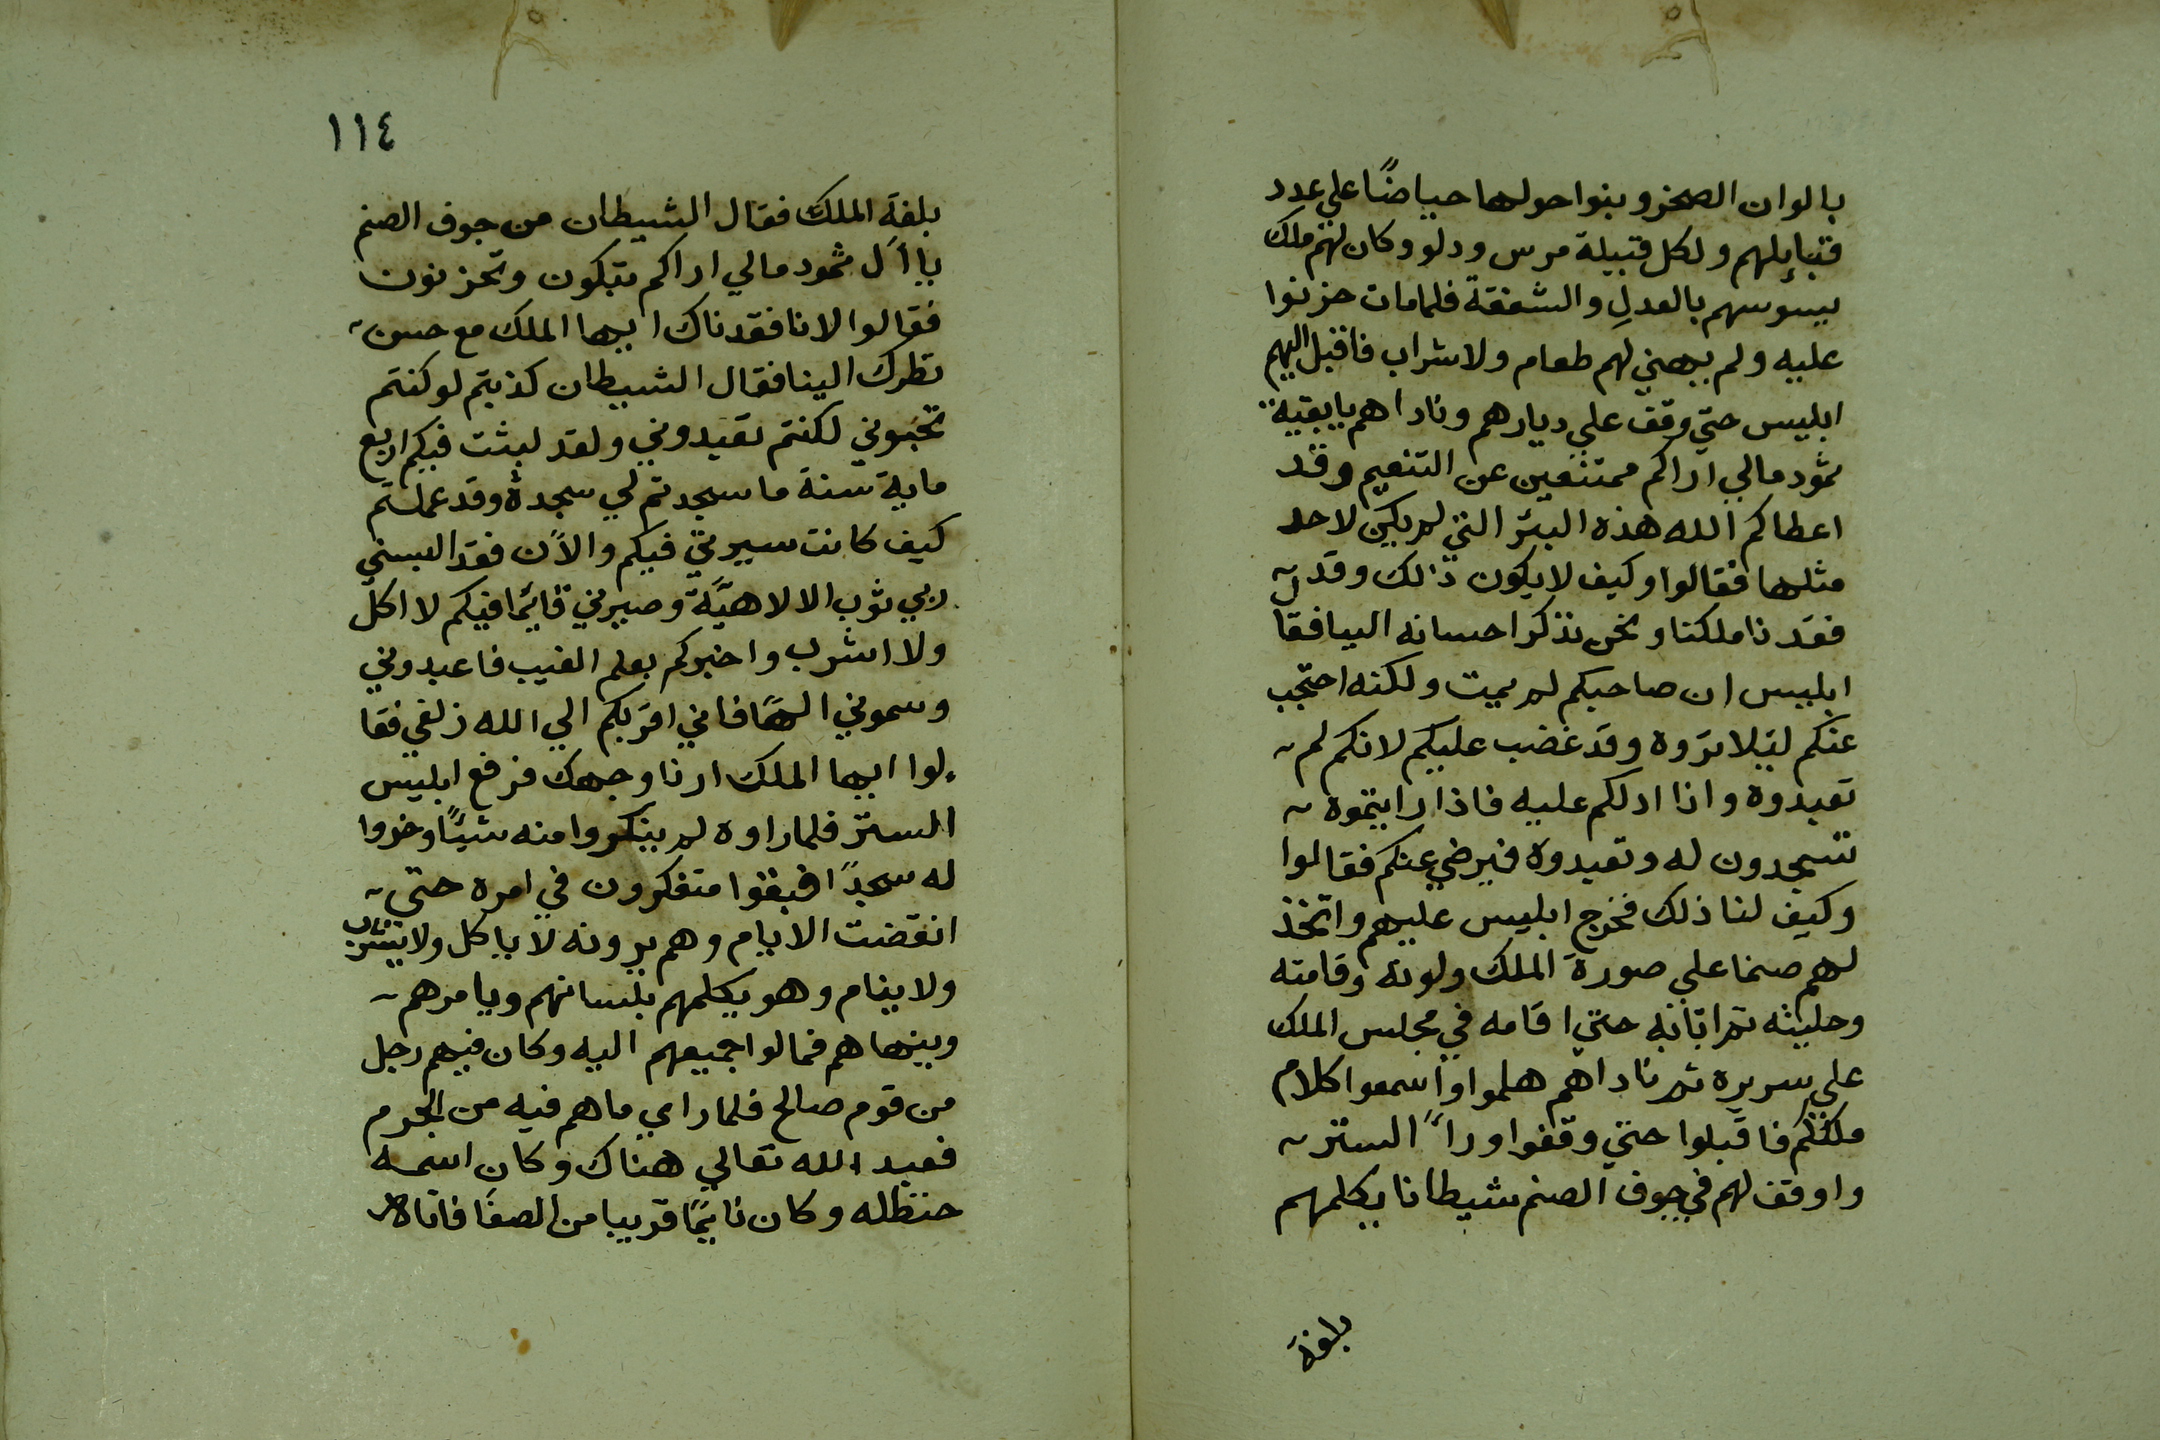 بالوان الصخر وبنوا حولها حياضًا علي عدد
قبايٕلهم ولكل قبيلة مرس ودلو وكان لهم ملك
يسوسهم بالعدلِ والشفقة فلمامات حزنوا
عليه ولم يهني لهم طعام ولا شراب فاقبل اليهم
ابليس حتّي وقف علي ديارهم وناداهم يابقية
ثمود مالي اراكم ممتنعين عن التنعيم وقد
اعطاكم الله هذه البئر التي لم يكن لاحد
مثلها فقالوا وكيف لا يكون ذلك وقد
فقدنا ملكنا ونحن نذكر احسانه الينا فقا
ابليس ان صاحبكم لم يمت ولكنه احتجب
عنكم لئلا تروة وقد غضب عليكم لانكم لم
تعبدوة وانا ادلكم عليه فاذا رايتموه
تسجدون له وتعبدوه فيرضي عنكم فقالوا
وكيف لنا ذلك فخرج ابليس عليهم واتخذ
لهم صنما علي صورة الملك ولونه وقامته
وحليته ثم اتانه حتي اقامه في مجلس الملك
علي سريره ثم ناداهم هلموا واسمعوا كلام
ملككم فاقبلوا حتي وقفوا ورآء الستر
واوقف لهم في جوف الصنم شيطانا يكلمهم
بلغة
١١٤
بلغة الملك فقال الشيطان من جوف الصنم
يا آل ثمود مالي اراكم تبكون وتحزنون
فقالوا لانا فقدناك ايها الملك مع حسن
نظرك الينا فقال الشيطان كذبتم لو كنتم
تحبوني لكنتم تعبدوني ولقد لبثت فيكم اربع
ماية سنة ما سجدتم لي سجدة وقد علمتم
كيف كانت سيرتي فيكم والآن فقد البسني
ربي ثوب الالاهيَّة وصيرني قايمٔا فيكم لا اكل
ولا اشرب واخبركم بعلم الغيب فاعبدوني
وسموني الهًا فاني اقربكم الي الله زلفي فقا
لوا ايها الملك ارنا وجهك فرفع ابليس
الستر فلما راوه لم ينكروا منه شيئًا وخروا
له سجدًا فبقوا متفكرون في امره حتي
انقضت الايام وهم يرونه لا ياكل ولا يشرب
ولا ينام وهو يكلمهم بلسانهم ويامرهم
وينهاهم فمالوا جميعهم اليه وكان فيهم رجل
من قوم صالح فلما راي ما هم فيه من الجرم
فعبد الله تعالي هناك وكان اسمه
حنظله وكان نايمًٔا قريبا من الصفا فاتاه